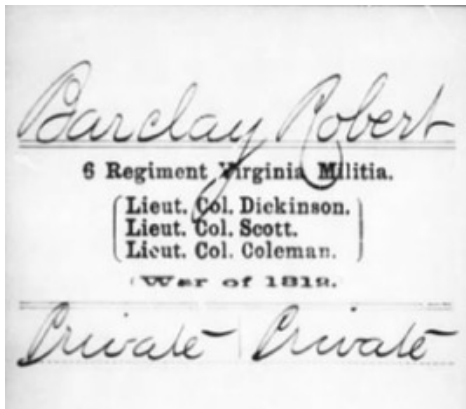 Barclay Robert
6 Regiment Virginia Militia.
Lieut. Col. Dickinson.
Lieut. Col. Scott.
Lieut. Col. Coleman.
(War of 1812.
Private | Private